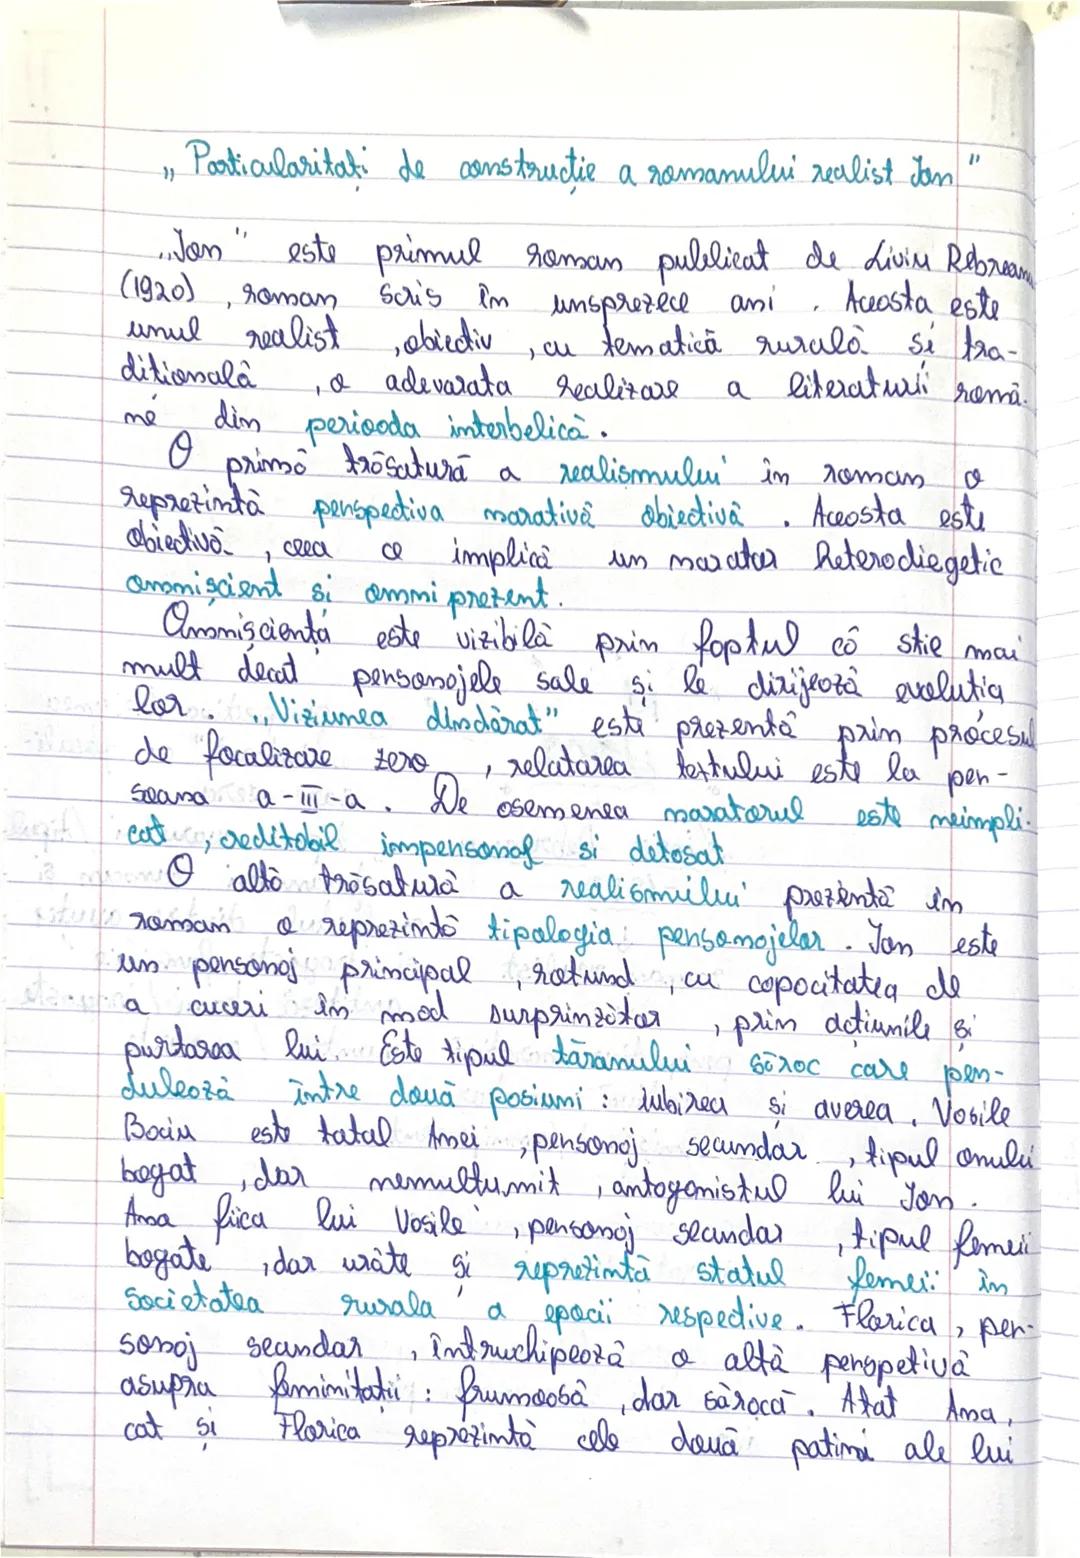 „Particularitați de construcție a romanului realist Ion"
„Ion" este primul roman publicat de Liviu Rebreanu
(1920), roman scris în unsprezece ani. Aceasta este
unul realist, obiectiv, cu tematică rurală și tra-
ditională, o adevarata realizare a literaturii româ-
ne din perioada interbelică.
O primă trăsatură a realismului în roman o
reprezintă perspectiva narativă obiectivă. Aceasta este
obiectivă, ceea ce implică un narator heterodiegetic
omniscient si omniprezent.
Omnisciența este vizibilă prin faptul că stie mai
mult decat personajele sale și le dirijează evoluția
lor. „Viziunea dindărat" este prezentă prin procesul
de focalizare zero, relatarea textului este la per-
soana a-III-a. De asemenea naratorul este neimpli-
cat, creditabil impersonal si detasat
O altă trăsatură a realismului prezentă în
roman o reprezintă tipologia personajelor. Ion este
un personaj principal, rotund, cu capacitatea de
a cuceri în mod surprinzător, prin acțiunile și
purtarea lui. Este tipul tăranului sărac care pen-
dulează între două pasiuni: iubirea și averea. Vasile
Baciu este tatal Anei, personaj secundar, tipul omului
bogat, dar nemultumit, antagonistul lui Ion.
Ana fiica lui Vasile, personaj secundar, tipul femeii
bogate, dar urâte și reprezintă statul femeii în
societatea rurala a epocii respective. Florica, per-
sonaj secundar, întruchipează o altă perspetivă
asupra feminitatii: frumoasă, dar săracă. Atat Ana,
cat și Florica reprezintă cele două patimi ale lui